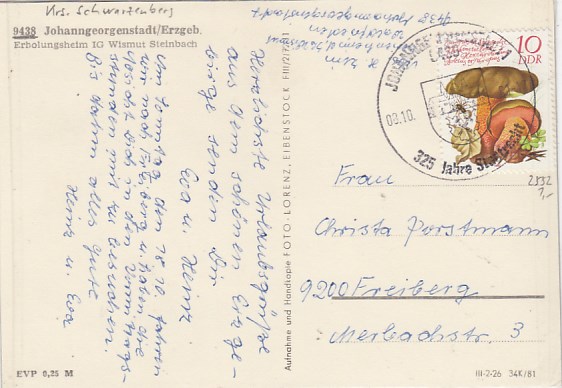 Krs. Schwarzenberg
9438 Johanngeorgenstadt/Erzgeb.
Erholungsheim IG Wismut Steinbach
Herzlichste Urlaubsgrüße
aus dem schönen Erzge-
birge senden Dir
Eva u. Heinz
Am Sonntag den 18.10. fahren
wir nach
Dich in den
stunden mit zu besuchen.
Bis dahin alles Gute
Heinz u. Eva
EVP 0,25 M
Aufnahme und Handkopie FOTO-LORENZ, EIBENSTOCK
9438 Johanngeorgenstadt
JOHANNGEORGENSTADT 1
9438
09.10.
325 Jahre Stadtrecht
10
DDR
2552
1,-
Frau
Christa Porstmann
9200 Freiberg
Merbachstr. 3
III-2-26 34K/81